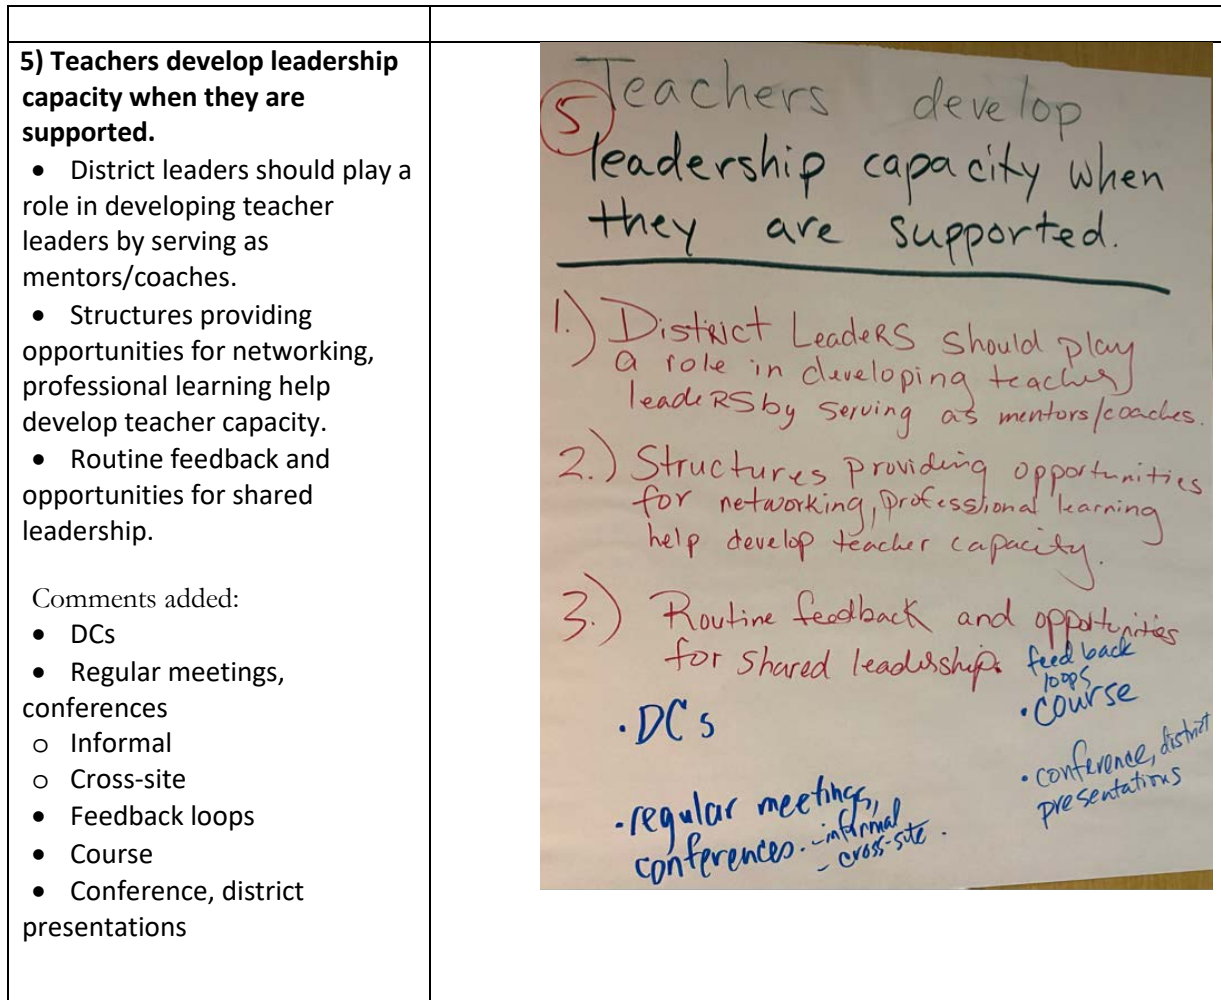 5) Teachers develop leadership
capacity when they are
supported.
• District leaders should play a
role in developing teacher
leaders by serving as
mentors/coaches.
• Structures providing
opportunities for networking,
professional learning help
develop teacher capacity.
• Routine feedback and
opportunities for shared
leadership.
Comments added:
• DCs
• Regular meetings,
conferences
o Informal
o Cross-site
• Feedback loops
• Course
• Conference, district
presentations
5 Teachers develop
leadership capacity when
they are supported.
1.) District Leaders should play
a role in developing teacher
leaders by serving as mentors/coaches.
2.) Structures providing opportunities
for networking, professional learning
help develop teacher capacity.
3.) Routine feedback and opportunities
for shared leadership.
feedback
loops
• DCs
• course
• conference, district
presentations
• regular meetings,
conferences. - informal
- cross-site.